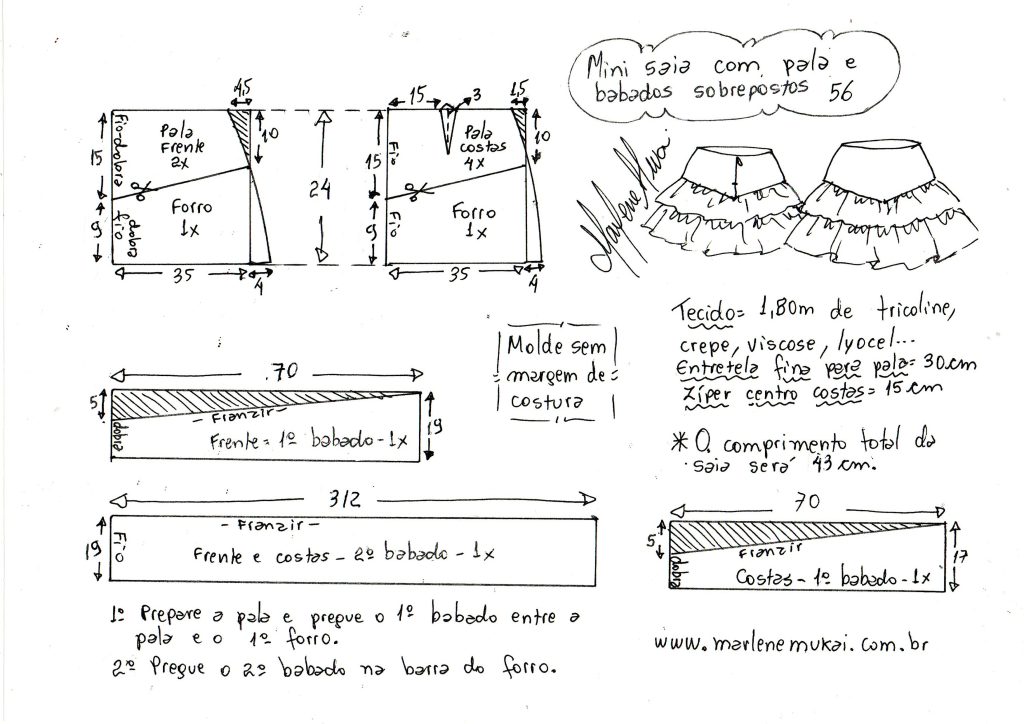 Mini saia com pala e
babados sobrepostos 56
Marlene Mukai
4,5
Fio-dobra
Pala
Frente
2x
10
15
Forro
1x
dobra
fio
9
35
4
24
15
3
1,5
Fio
Pala
costas
4x
10
15
Forro
1x
Fio
9
35
4
Tecido= 1,80m de tricoline,
crepe, viscose, lyocel...
Entretela fina para pala= 30.cm
Zíper centro costas= 15.cm
* O comprimento total da
saia será 43 cm.
Molde sem
margem de
costura
70
5
- Franzir -
dobra
Frente= 1º babado - 1x
19
312
- Franzir -
19
Fio
Frente e costas - 2º babado - 1x
70
5
Franzir
dobra
Costas - 1º babado - 1x
17
1º Prepare a pala e pregue o 1º babado entre a
pala e o 1º forro.
2º Pregue o 2º babado na barra do forro.
www.marlenemukai.com.br